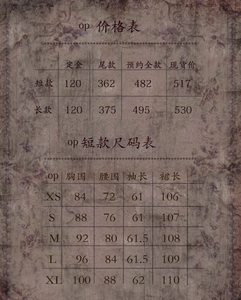 op 价格表
定金 尾款 预约全款 现货价
短款 120 362 482 517
长款 120 375 495 530
op 短款尺码表
op 胸围 腰围 袖长 裙长
XS 84 72 61 106
S 88 76 61 107
M 92 80 61.5 108
L 96 84 61.5 109
XL 100 88 62 110